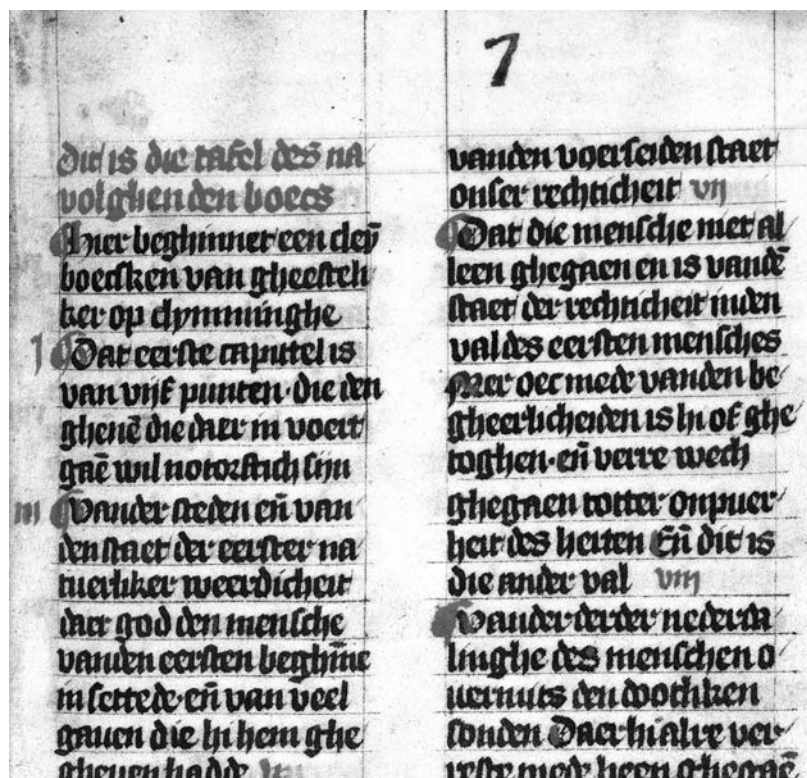 7
Dit is die tafel des na
volghenden boecs
Hier beghinnet een cleÿ
boecsken van gheesteli
ker op clymminghe
I Dat eerste capittel is
van vijf punten · die den
ghenē die daer in voert
gaē wil notorftich sijn
III Vander steden eñ van
den staet der eerster na
tuerliker weerdicheit
daer god den mensche
vanden eersten beghīne
in settede · eñ van veel
gauen die hi hem ghe
gheuen hadde
vanden voerseiden staet
onser rechticheit vij
Dat die mensche niet al
leen ghegaen en is vandē
staet der rechticheit inden
val des eersten mensches
Mer oec mede vanden be
gheerlicheiden is hi of ghe
toghen · eñ verre wech
ghegaen totter onpuer
heit des herten Eñ dit is
die ander val viij
Vander derder nederda
linghe des menschen o
uermits den dootliken
sonden Daer hi alre ver
reste mede heen ghegaē